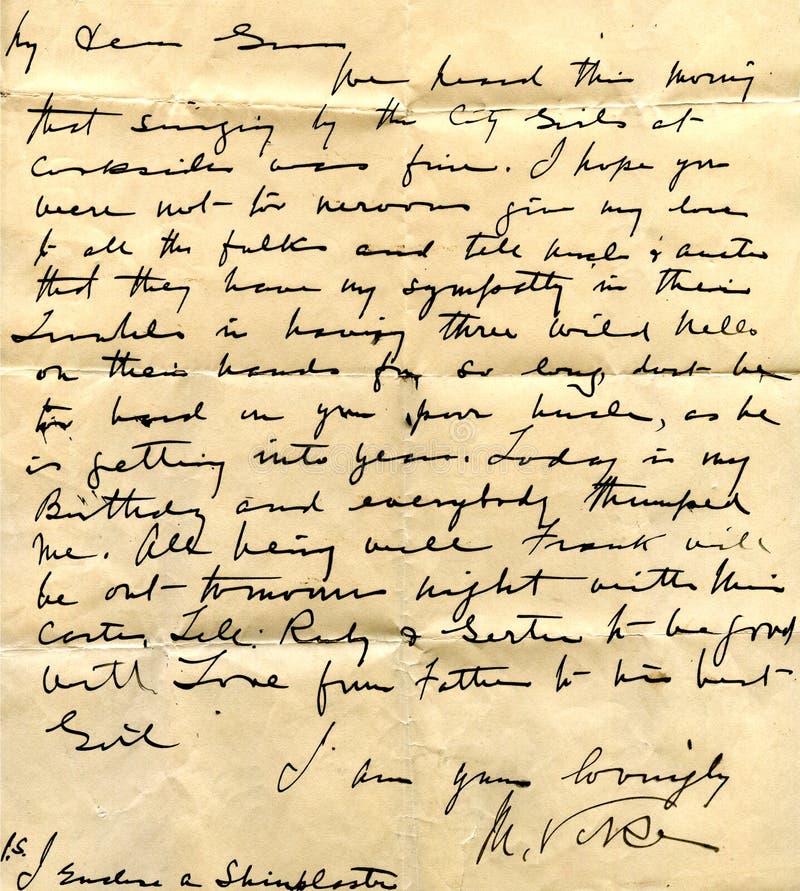 My Dear
We heard this morning
that singing by the City Girls at
was fine. I hope you
were not too nervous give my love
to all the folks and tell Uncle & Auntie
that they have my sympathy in their
Troubles in having three wild
on their hands for so long, dont be
too hard on your poor Uncle, as he
is getting into years. Today is my
Birthday and everybody thumped
me. All being well Frank will
be out tomorrow night with Miss
Carter. Tell Ruby & Gertie to be good
with Love from Father to his best
Girl
I am yours lovingly
M.
P.S.
I Enclose a Shinplaster